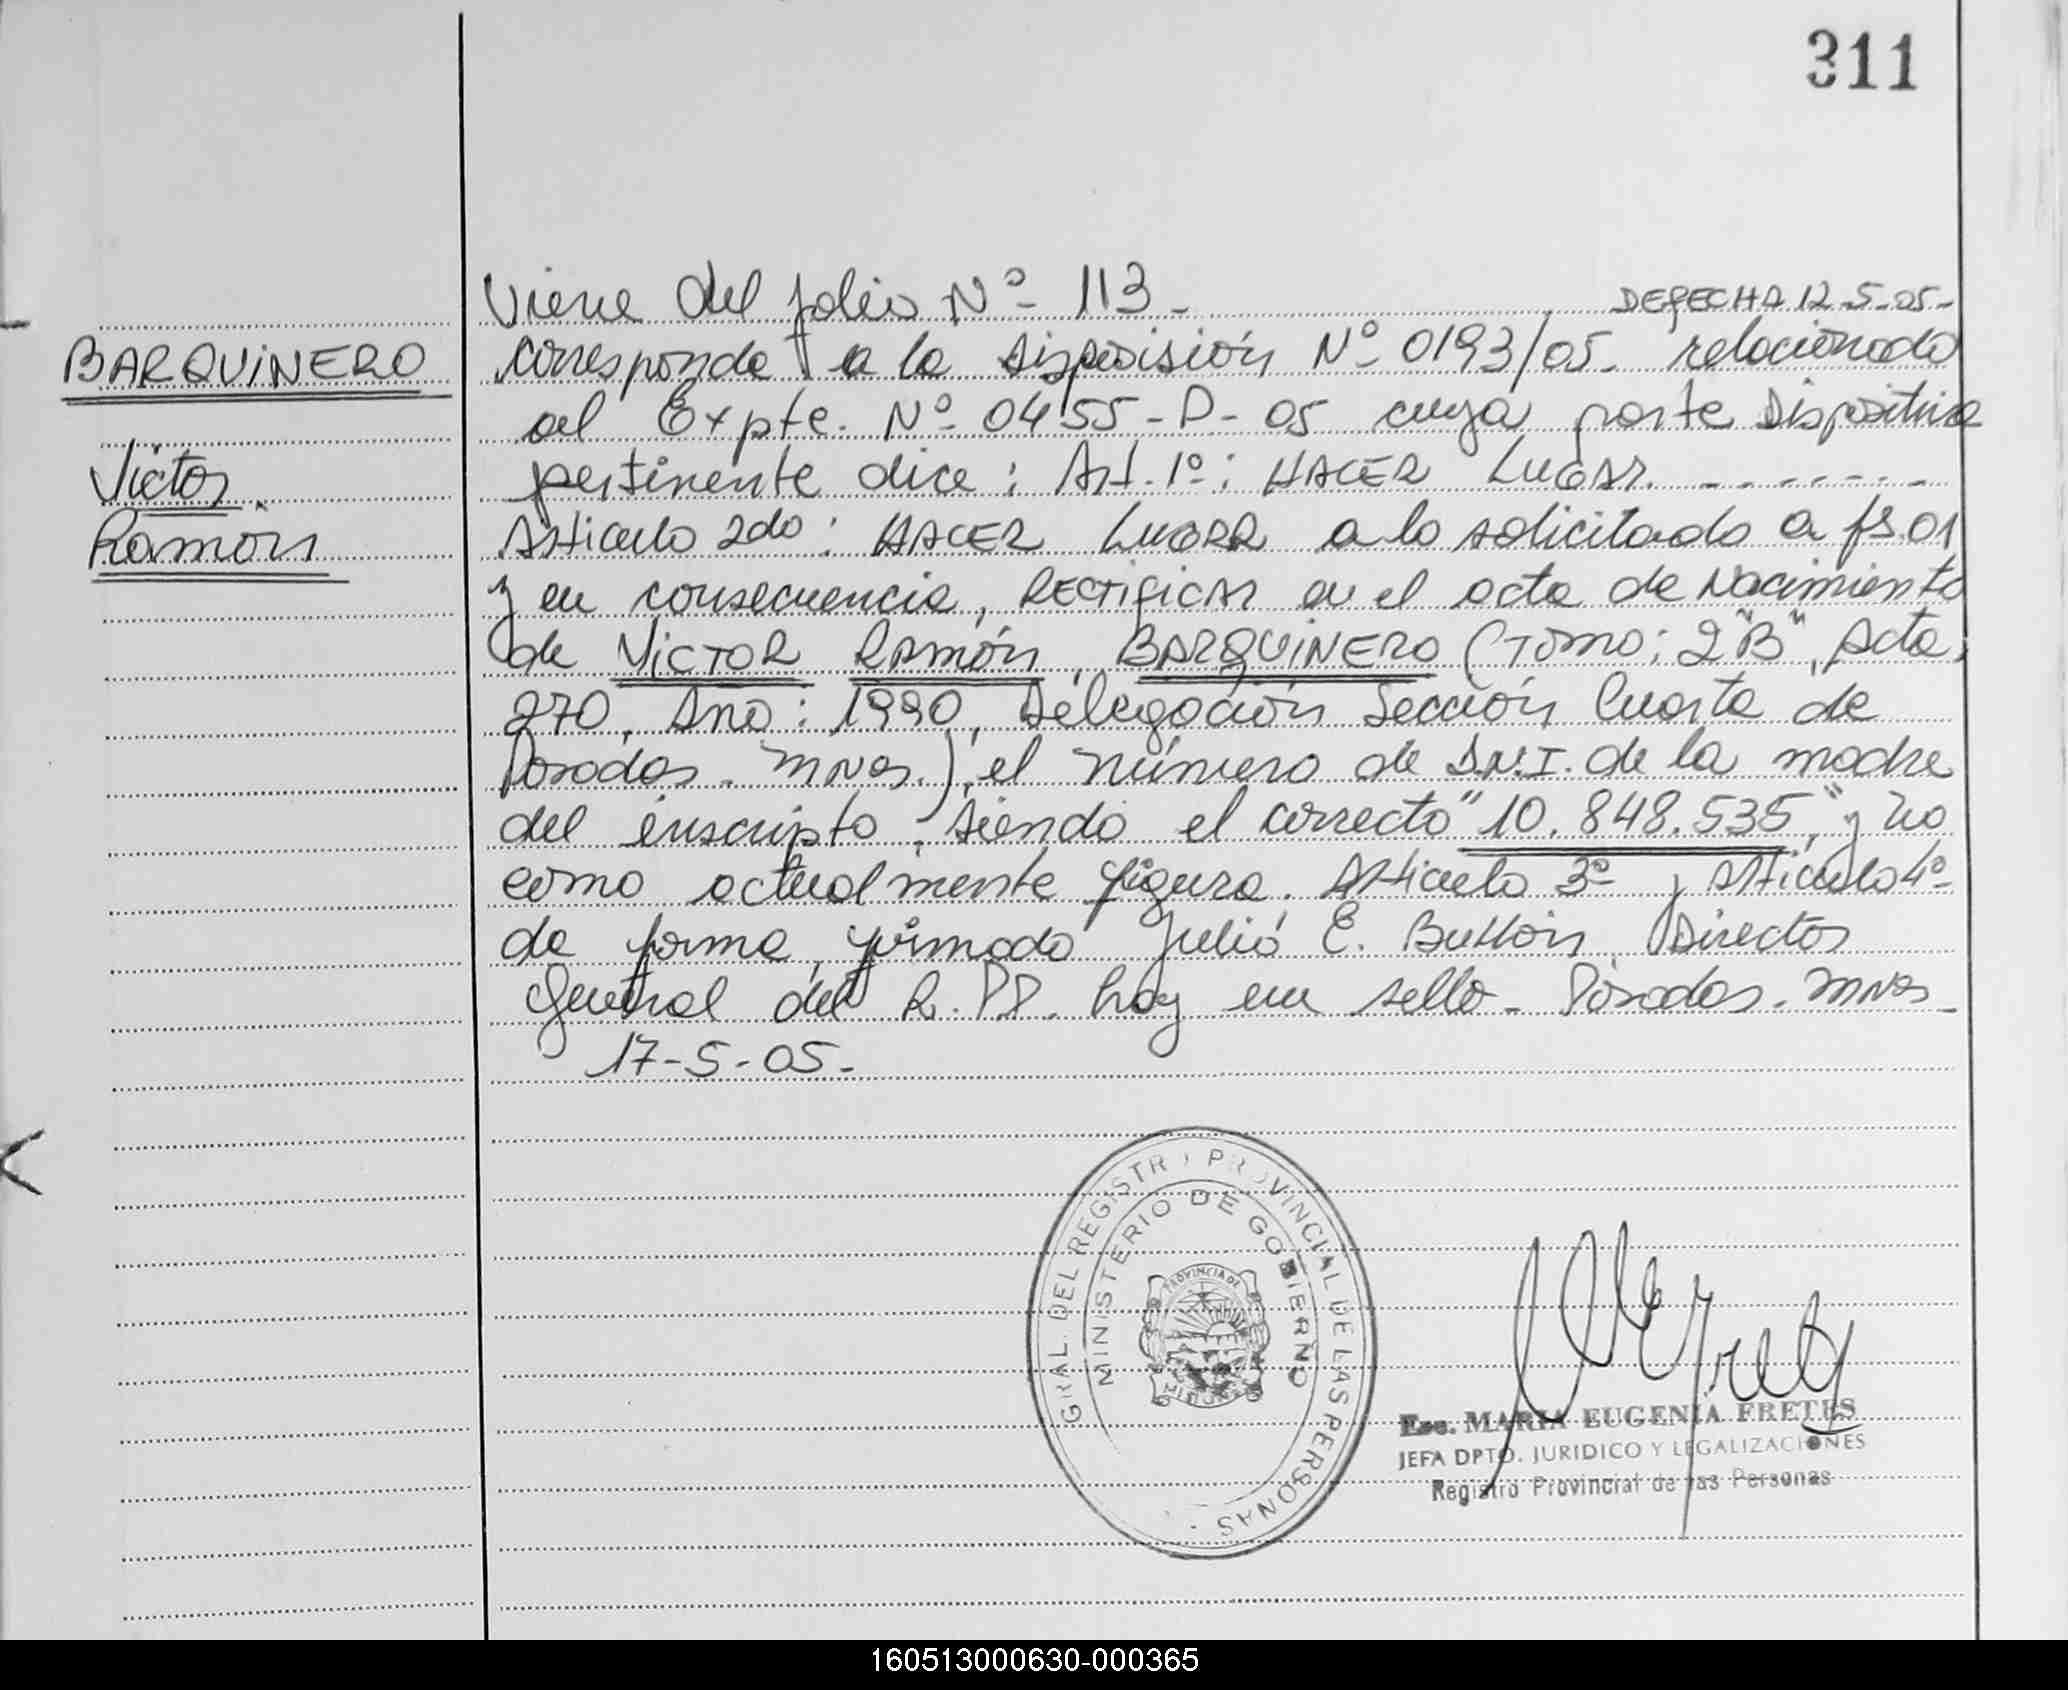 311
Viene del folio Nº- 113-
DE FECHA 12-5-05-
BARQUINERO
Victor
Ramón
corresponde a la disposisión Nº- 0193/05- relacionado
al Expte. Nº- 0455-D-05 cuya parte Dispositiva
pertinente dice: Art. 1º: HACER LUGAR. - - - - - - -
Articulo 2do: HACER LUGAR a lo solicitado a fs.01
y en consecuencia, RECTIFICAR en el acta de Nacimiento
de VICTOR RAMÓN BARQUINERO (Tomo: 2"B", Acta:
270, Año: 1990, Delegación Sección Cuarta de
Posadas. Mnes.), el número de D.N.I. de la madre
del inscripto, siendo el correcto "10.848.535," y no
como actualmente figura. Articulo 3º- y Articulo 4º-
de forma, firmado Julio E. Director
General del R.PP. hay un sello- Posadas. Mnes-
17-5-05.-
GRAL. DEL REGISTRO PROVINCIAL DE LAS PERSONAS
MINISTERIO DE GOBIERNO
PROVINCIA DE
Esc. MARIA EUGENIA FRETES
JEFA DPTO. JURIDICO Y LEGALIZACIONES
Registro Provincial de las Personas
160513000630-000365